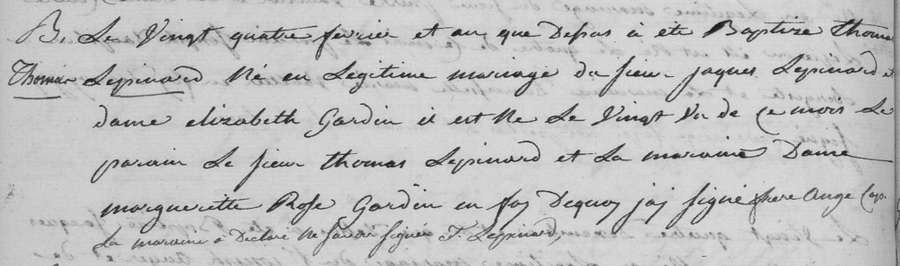 B. Le Vingt quatre fevrier et an que Depus à ete Baptize thomas
Thomas Lepinard Né en Legitime mariage du sieur jaques Lepinard et
dame elizabeth Gardin il est Ne Le Vingt Un de ce mois Le
parain Le sieur thomas Lepinard et La maraine Dame
marguerite Rose Gardin en foy Dequoy jay signé frere Ange Cap.
La maraine a Declaré Ne savoir signer T. Lepinard